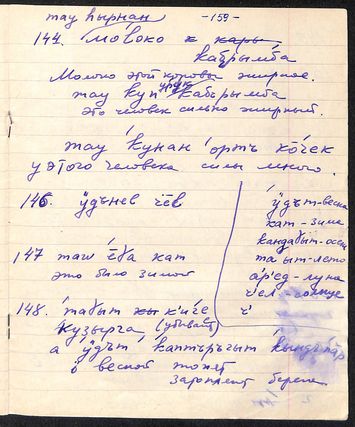 тау һырнан
-159-
144. мо́локо к кары
кабрымба
Молоко этой коровы жирное.
тау куп урук кабырымба
это человек сильно жирный.
тау ку́нан о́рть ко́чек
у этого человека силы много.
146. ӱдънев чёв
147 таш ёба кат
это было зимой
148. та́быт кы к'иге
кузырга (убывает)
а ӱдът каптъръгыт кындъпар
а весной может
затопляет берега
ӱдът-весна
кат-зима
кандабыт-осень
таыт-лето
а́ред-луна
че́л-солнце
ч'